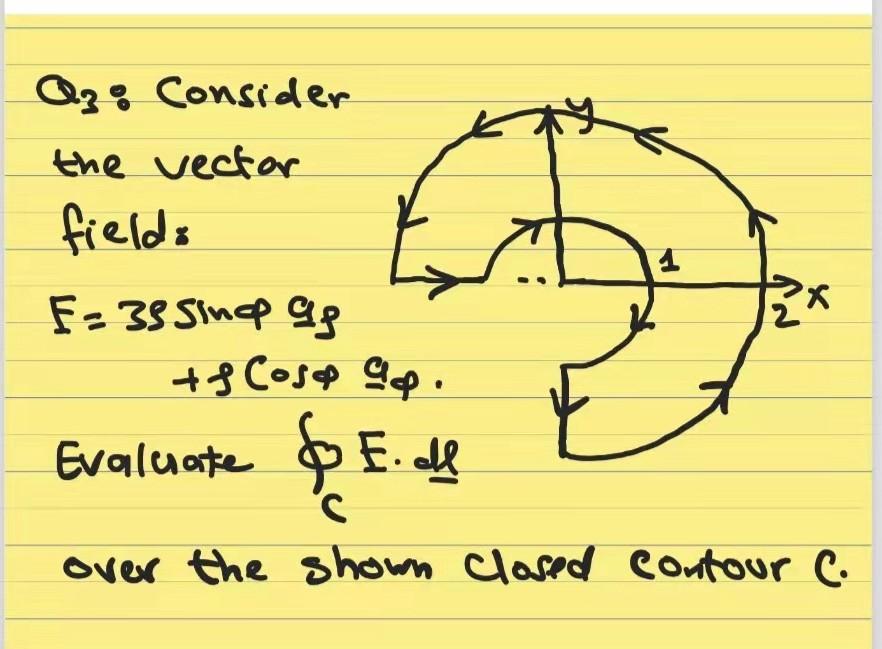 Q3: Consider
the vector
field:
E = 3ρ Sinφ aρ
+ρ Cosφ aφ.
Evaluate ∮ E. dl
C
over the shown Closed Contour C.
y
1
2
x